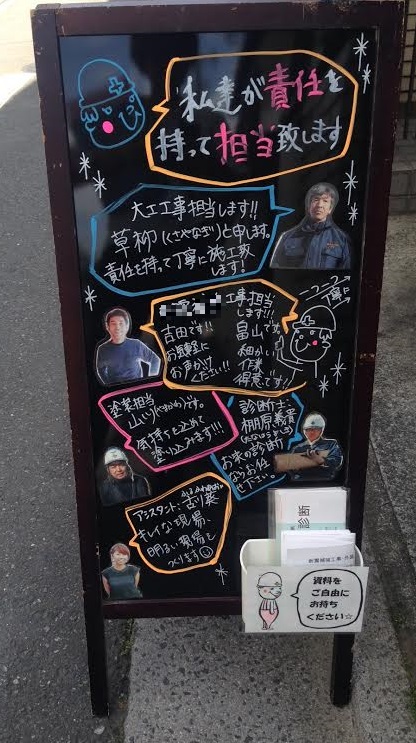 私達が責任を
持って担当致します
大工工事担当します!!
草柳(くさやなぎ)と申します。
責任を持って丁寧に施工致
します!
工事担当
します!!
吉田です!!
お気軽に
お声がけ
ください!!
畠山です。
細かい
作業
得意です!
塗装担当
です。
気持ちを込めて
塗り込みます!!!
診断士、
相原義貴
お家の診断
ならお任
せ下さい。
アシスタント:古川葵
キレイな現場、
明るい現場を
つくります
診断
資料を
ご自由に
お持ち
ください☆